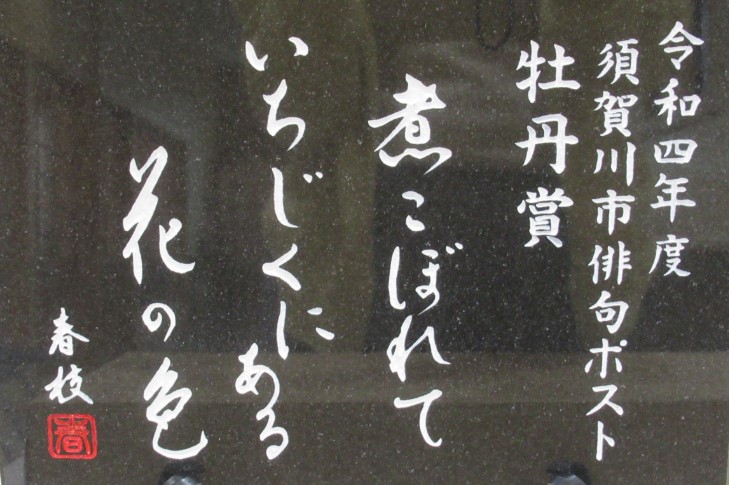 令和四年度
須賀川市俳句ポスト
牡丹賞
煮こぼれて
いちじくにある
花の色
春枝
春